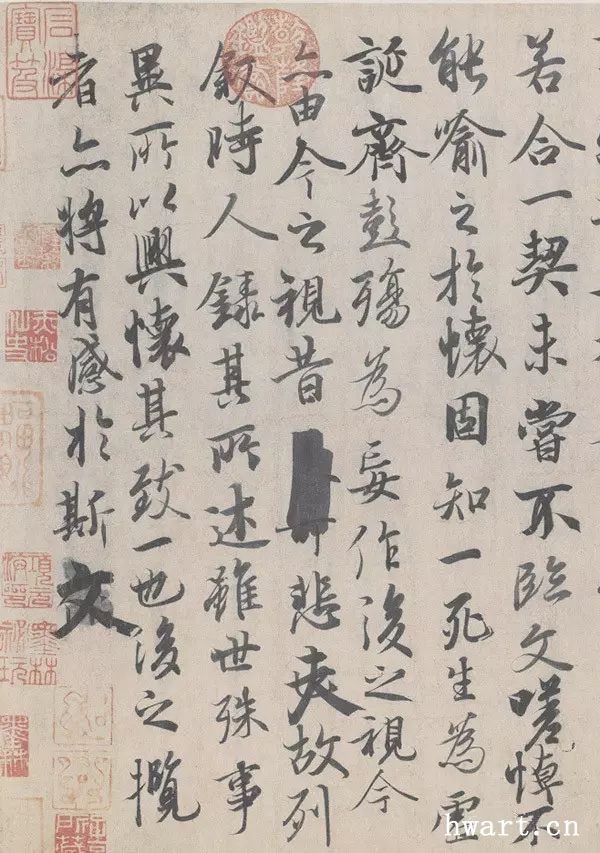 若合一契未嘗不臨文嗟悼不
能喻之於懷固知一死生為虛
誕齊彭殤為妄作後之視今
亦由今之視昔 悲夫故列
敘時人錄其所述雖世殊事
異所以興懷其致一也後之攬
者亦將有感於斯文
hwart.cn